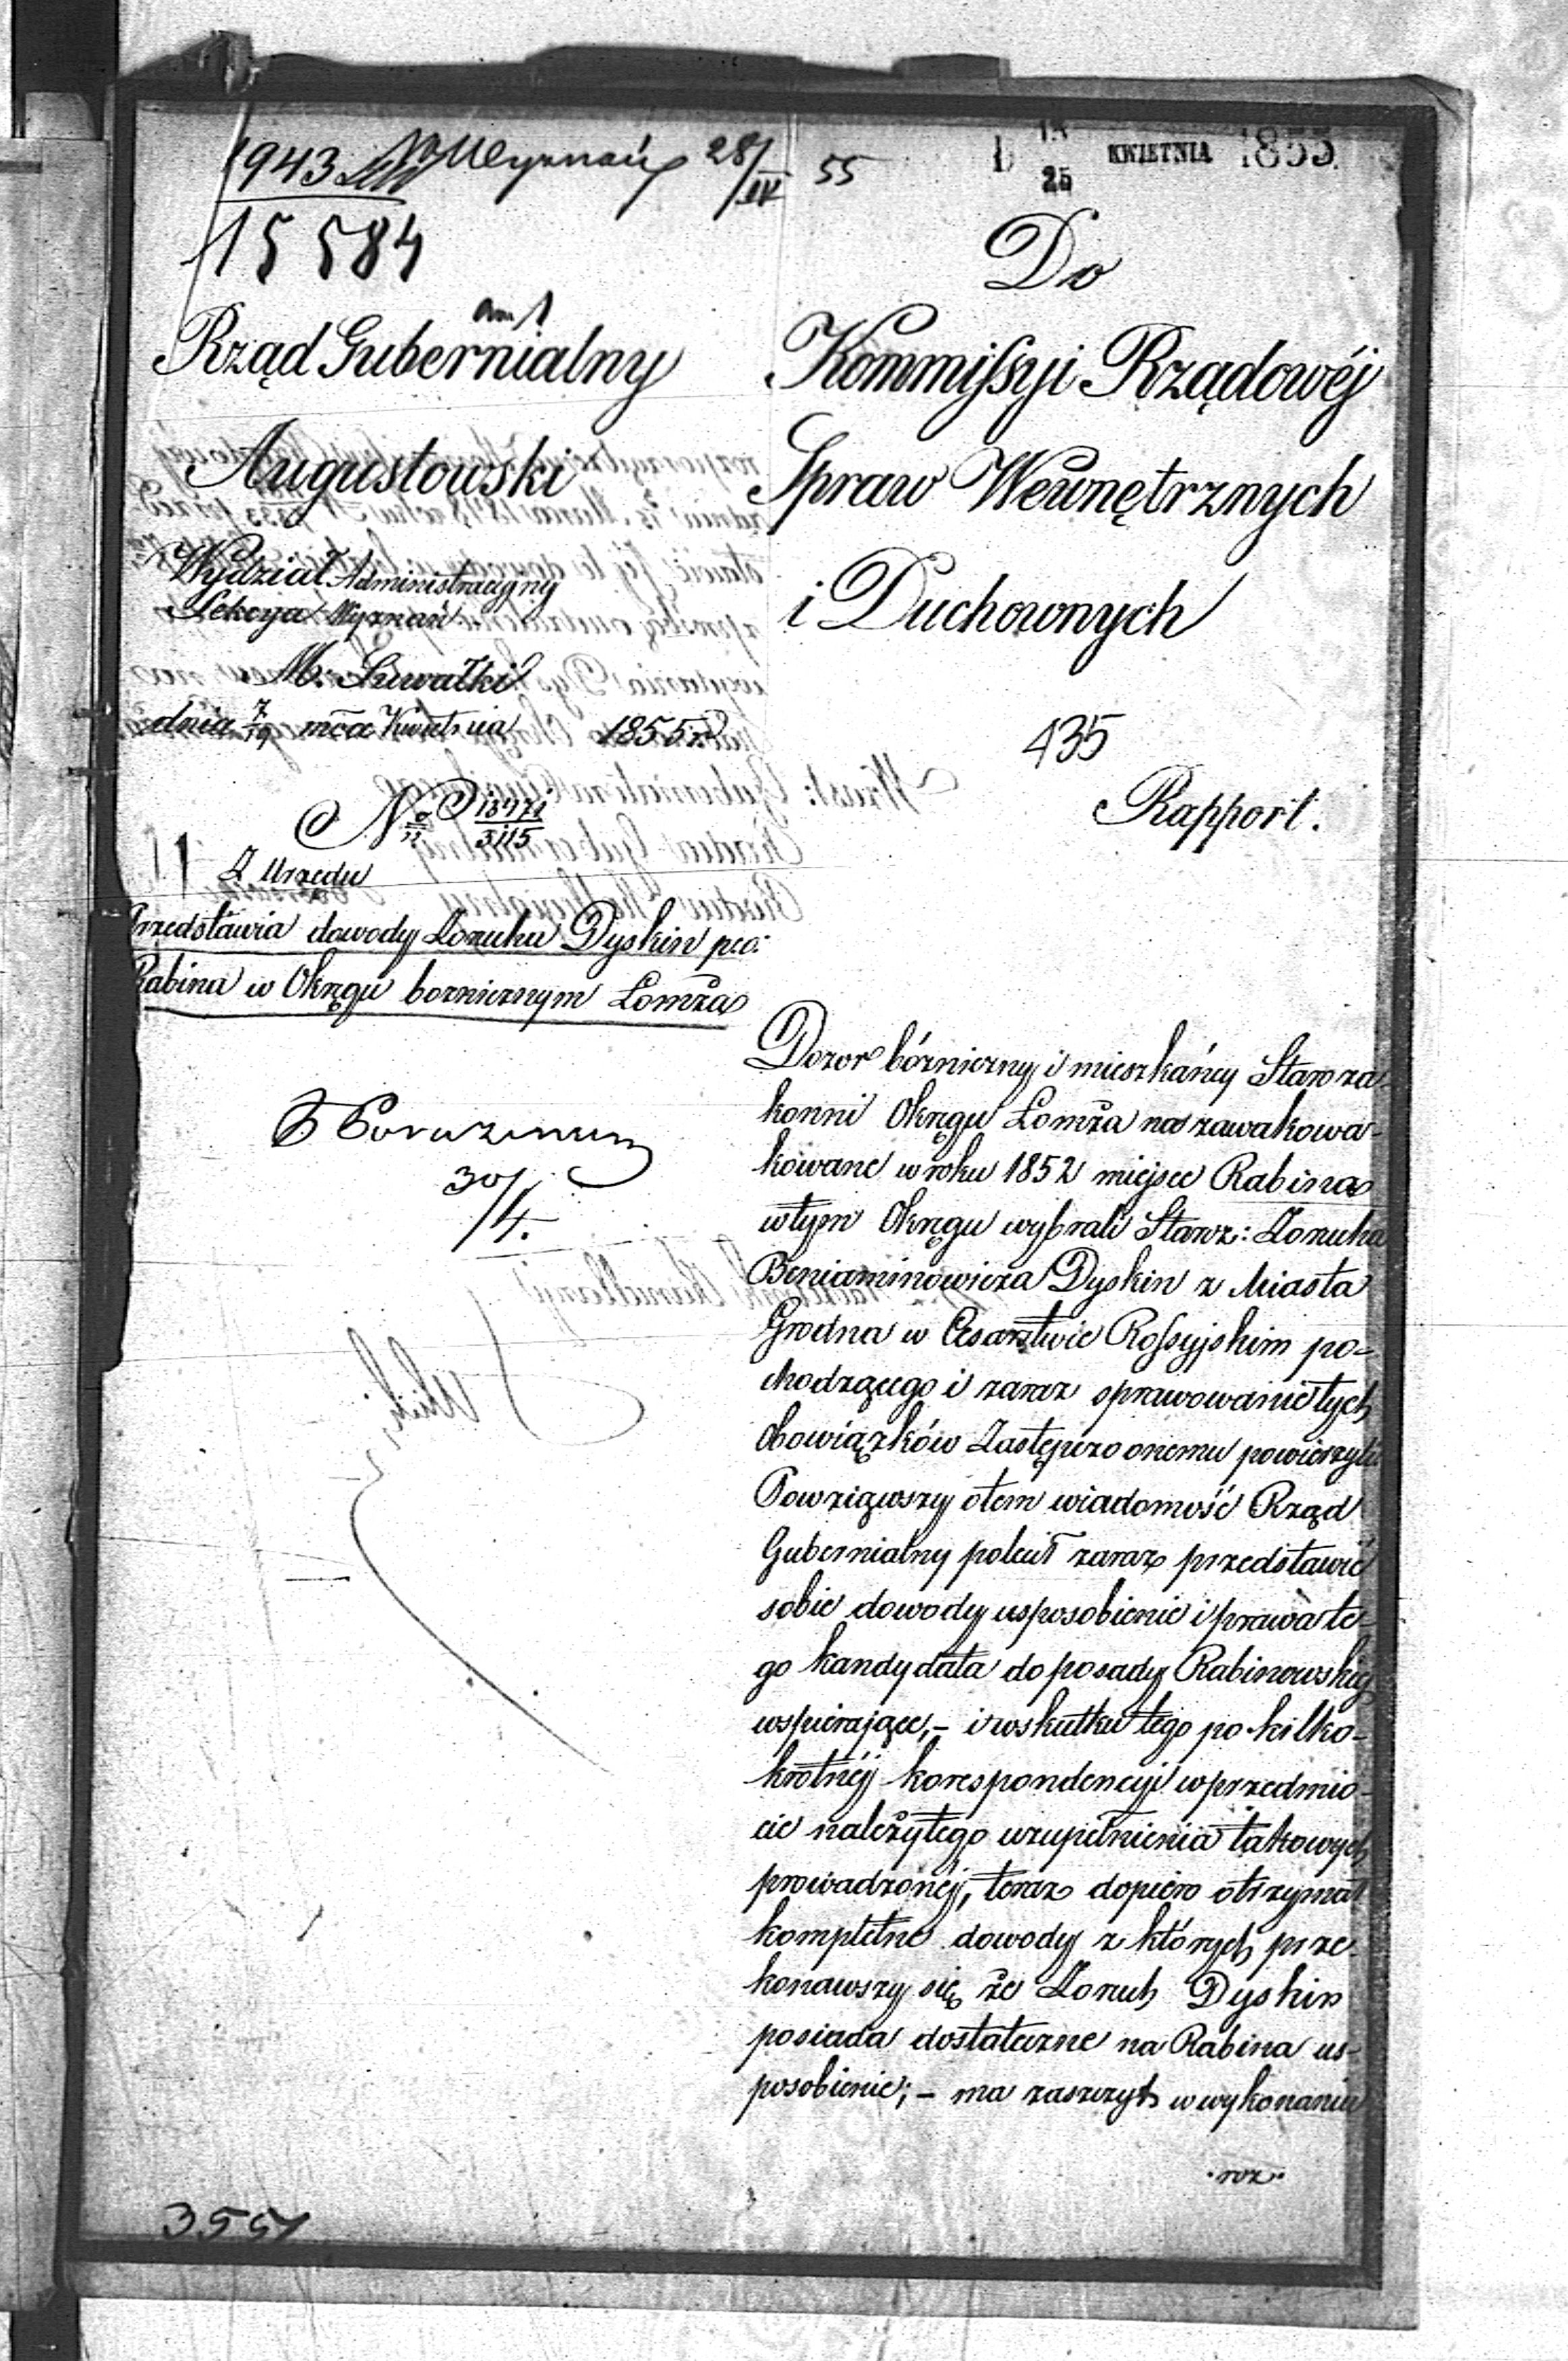 1943 Wyznań 28/IV 55
13/25 KWIETNIA 1855.
15584
Rząd Gubernialny
Augustowski
Wydział Administracyjny
Sekcya Wyznań
M. Suwałki
dnia 7/19 mca Kwietnia 1855 r.
No 18471/3115
Z Urzędu
Przedstawia dowody Zoruha Dyskin peo:
Rabina w Okręgu bożniczym Łomża
30/4.
3551
Do
Kommissyi Rządowéj
Spraw Wewnętrznych
i Duchownych
435
Rapport.
Dozor bóżniczny i mieszkańcy Staroza-
konni Okręgu Łomża na zawakowa-
kowane w roku 1852 miejsce Rabina
w tym Okręgu wybrali Starz: Zoruha
Beniaminowicza Dyskin z Miasta
Grodna w Cesarstwie Rossyjskim po-
chodzącego i zaraz sprawowanie tych
obowiązków Zastępczo onemu powierzyli
Powziąwszy o tem wiadomość Rząd
Gubernialny polecił zaraz przedstawić
sobie dowody usposobienie i prawa te-
go kandydata do posady Rabinowskiéj
wspierające, – i wskutku tego po kilko-
krotnéj korespondencyi w przedmio-
cie należytego uzupełnienia takowych
prowadzonéj, teraz dopiero otrzymał
kompletne dowody z których prze
konawszy się że Zoruh Dyskin
posiada dostateczne na Rabina us-
posobienie; – ma zaszczyt w wykonaniu
roz